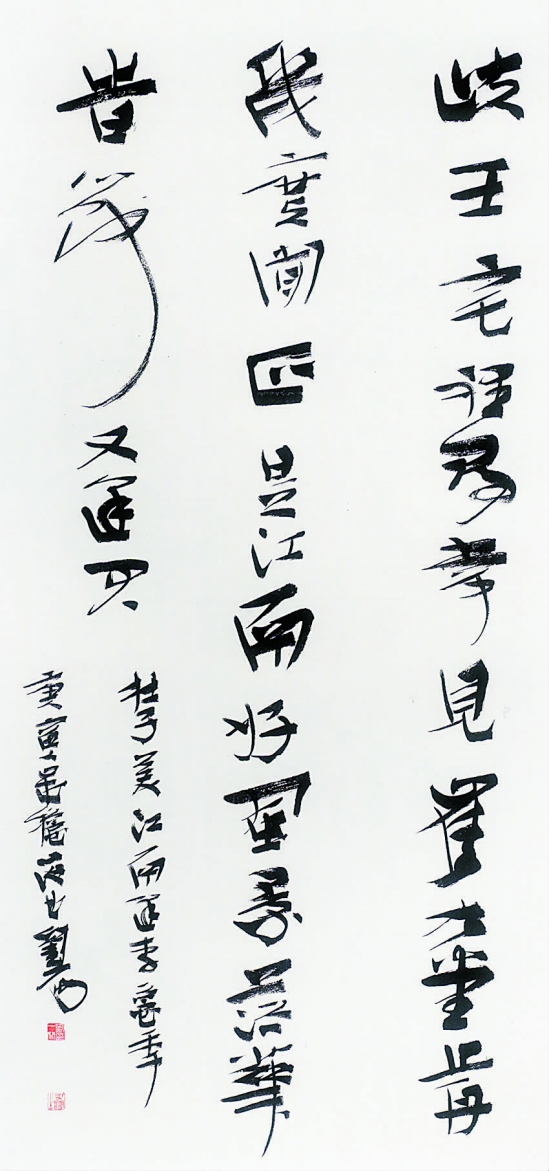 岐王宅裡尋常見崔九堂前
幾度聞正是江南好風景落華
旹節又逢君
杜子美江南逢李龜年
庚寅